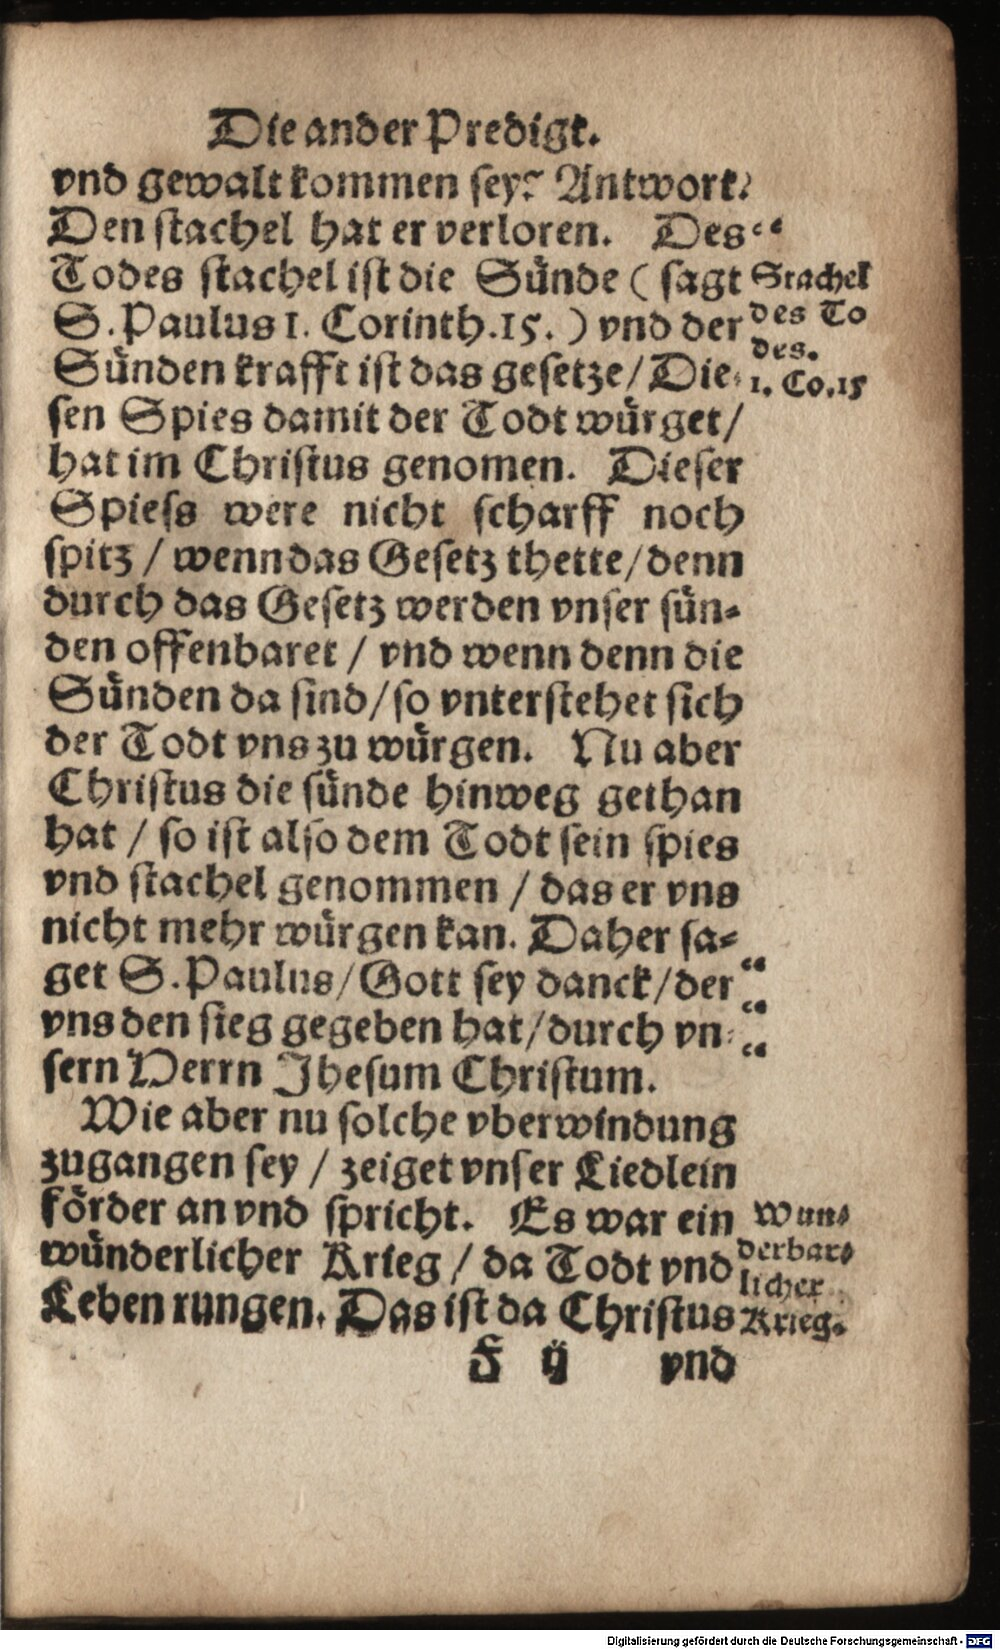 Die ander Predigt.
vnd gewalt kommen sey? Antwort:
Den stachel hat er verloren. Des “
Todes stachel ist die Sünde ( sagt
S. Paulus 1. Corinth. 15. ) vnd der
Sünden krafft ist das gesetze / Die-
sen Spies damit der Todt würget /
hat im Christus genomen. Dieser
Spiess were nicht scharff noch
spitz / wenn das Gesetz thette / denn
durch das Gesetz werden vnser sün-
den offenbaret / vnd wenn denn die
Sünden da sind / so vnterstehet sich
der Todt vns zu würgen. Nu aber
Christus die sünde hinweg gethan
hat / so ist also dem Todt sein spies
vnd stachel genommen / das er vns
nicht mehr würgen kan. Daher sa-
get S. Paulus / Gott sey danck / der “
vns den sieg gegeben hat / durch vn- “
sern Herrn Jhesum Christum. “
Wie aber nu solche vberwindung
zugangen sey / zeiget vnser Liedlein
förder an vnd spricht. Es war ein
wünderlicher Krieg / da Todt vnd
Leben rungen. Das ist da Christus
F ij vnd
Stachel
des To
des.
1. Co. 15
Wun-
derbar-
licher
Krieg.
Digitalisierung gefördert durch die Deutsche Forschungsgemeinschaft - DFG